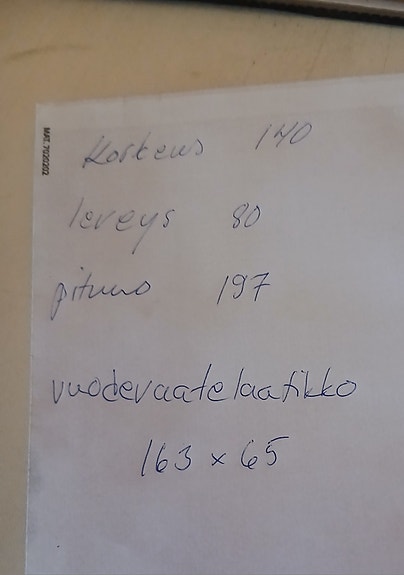 MAT.7020202
Korkeus 140
leveys 80
pituus 197
vuodevaatelaatikko
163 x 65